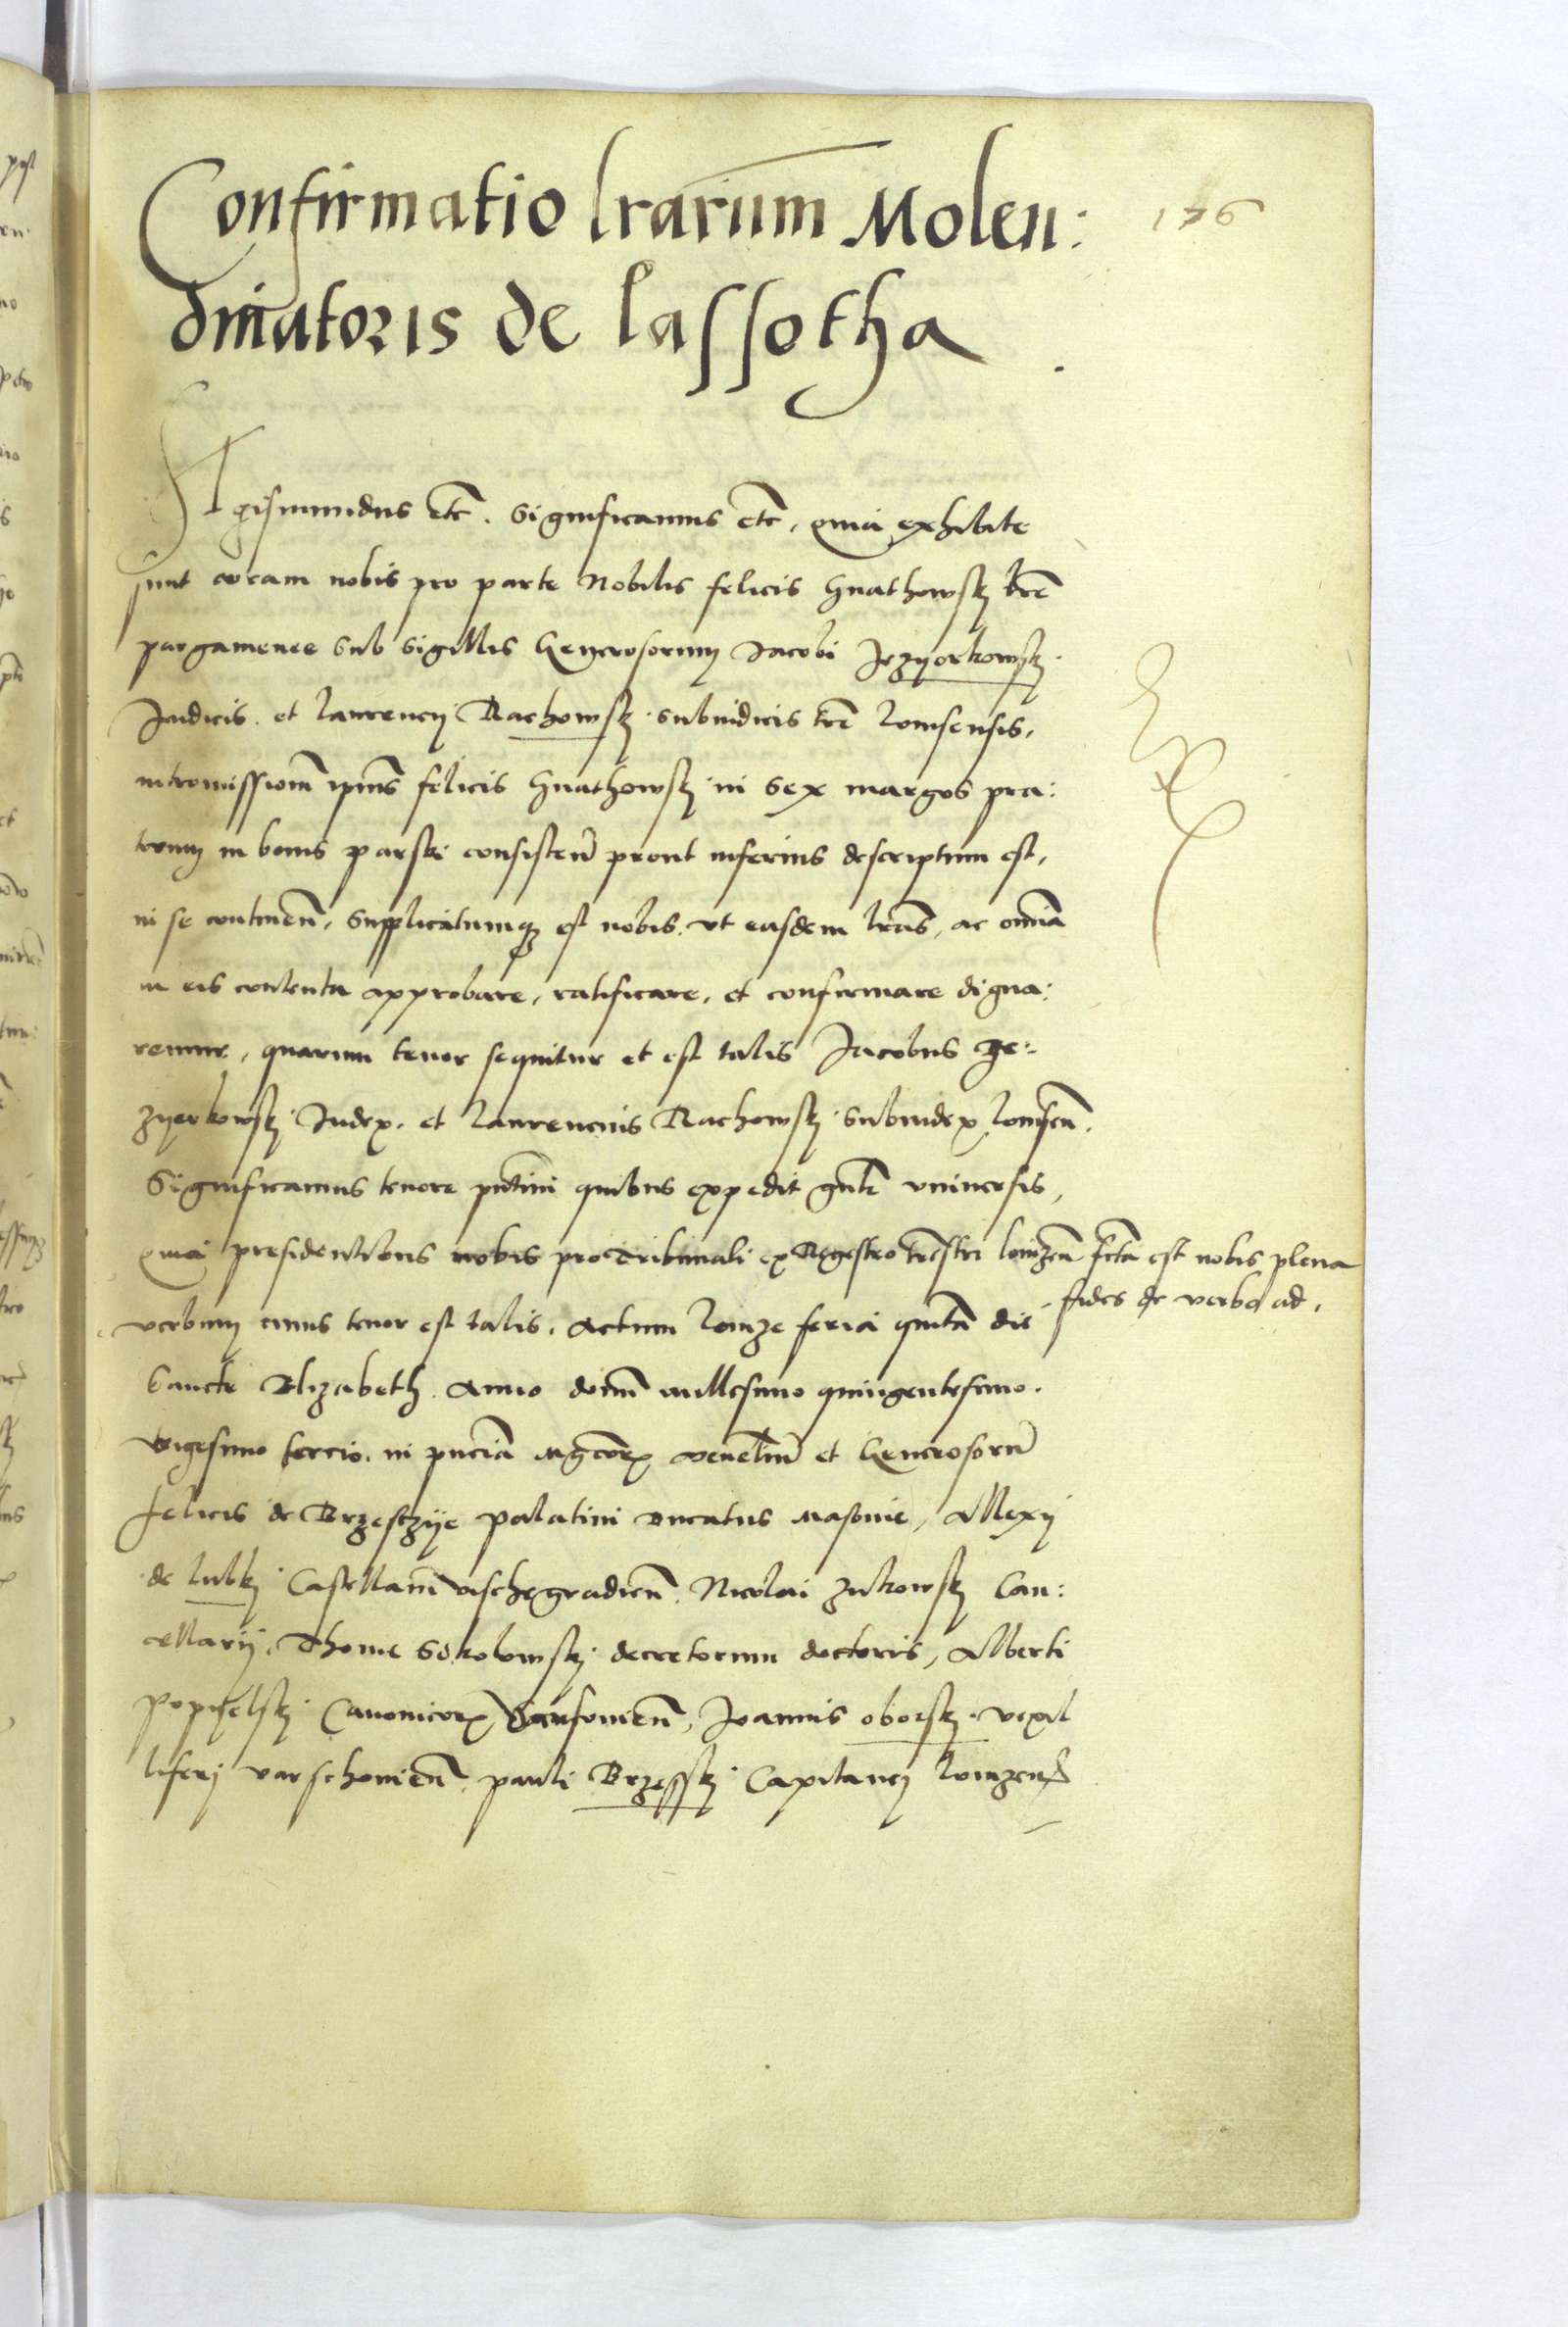 Confirmatio lrarum Molen:
dinatoris de Lassotha
176
Sigismundus etc. Significamus etc, quia exhibite
sunt coram nobis pro parte Nobilis felicis Gnathowskj lre
pargamenee sub sigillis Generosorum Jacobi Jezyorkowskj
Judicis et laurencij Rachowskj subiudicis tre lomsensis,
intromissionem ipius felicis Gnathowskj in sex margos pra:
torum in bonis parski consisten prout inferius descriptum est,
in se continen, Supplicatumq est nobis ut easdem lras, ac omnia
in eis contenta approbare, ratificare, et confirmare digna:
remur, quarum tenor sequitur et est talis Jacobus Je:
zyerkowskj Judex et laurencius Rachowskj subiudex lomsen.
Significamus tenore pntium quibus expedit gnte universis,
quia presidentibus nobis pro Tribunali ex Regestro trestri lomzen fcta est nobis plena
fides de verbo ad,
verbum cuius tenor est talis. Actum lomze feria quinta die
Sancte Elizabeth Anno domi millesimo quingentesimo
vigesimo tercio, in pncia Mgcor venelium et Generosoru
felicis de Brzesczye palatini ducatus Masovie, Allexij
de lubkj Castellani vischegradien Nicolai zukowskj Can:
cellarij, Thome Sokolowskj decretorum doctoris, Alberti
popyelskj Canonicor Varsovien, Joannis oborskj vexil
liferj varschovien pauli Brzesskj Capitanej lomzen